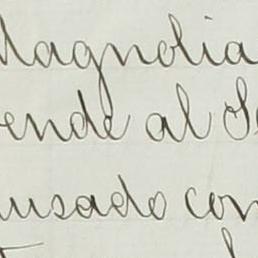 Magnolia
ende al Se
usado con